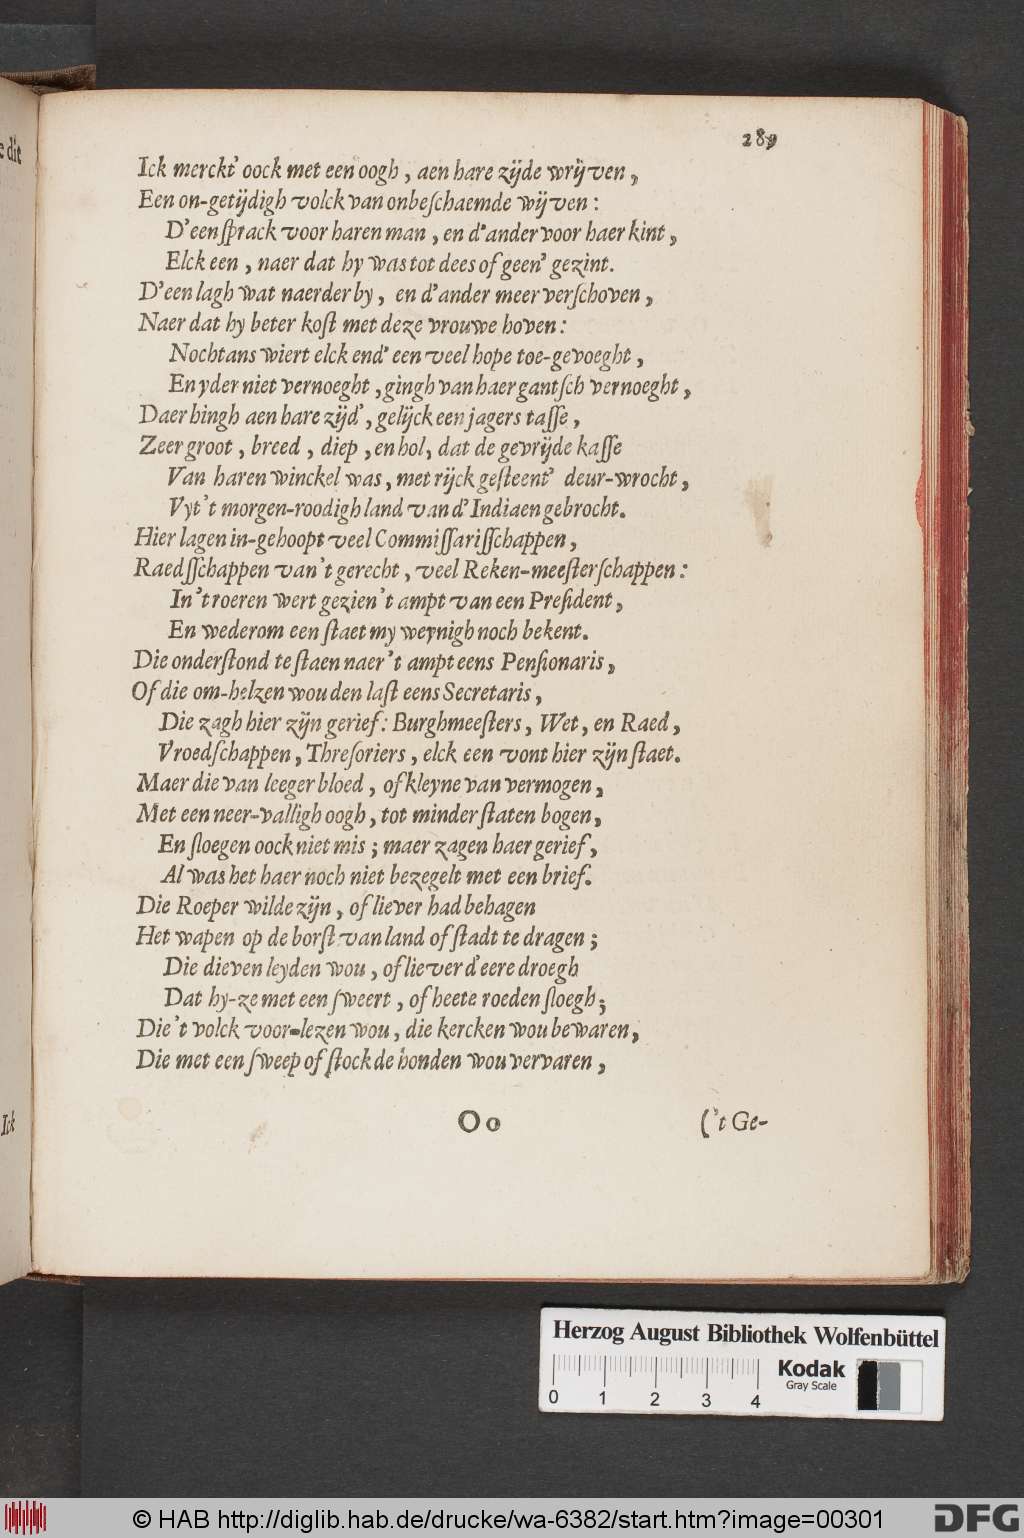 289
Ick merckt' oock met een oogh, aen hare zijde wrijven,
Een on-getijdigh volck van onbeschaemde wijven:
D'een sprack voor haren man, en d'ander voor haer kint,
Elck een, naer dat hy was tot dees of geen' gezint.
D'een lagh wat naerder by, en d'ander meer verschoven,
Naer dat hy beter kost met deze vrouwe hoven:
Nochtans wiert elck end' een veel hope toe-gevoeght,
En yder niet vernoeght, gingh van haer gantsch vernoeght,
Daer hingh aen hare zijd', gelijck een jagers tasse,
Zeer groot, breed, diep, en hol, dat de gevrijde kasse
Van haren winckel was, met rijck gesteent' deur-wrocht,
Vyt 't morgen-roodigh land van d'Indiaen gebrocht.
Hier lagen in-gehoopt veel Commissarisschappen,
Raedsschappen van 't gerecht, veel Reken-meesterschappen:
In 't roeren wert gezien 't ampt van een President,
En wederom een staet my weynigh noch bekent.
Die onderstond te staen naer 't ampt eens Pensionaris,
Of die om-helzen wou den last eens Secretaris,
Die zagh hier zijn gerief: Burghmeesters, Wet, en Raed,
Vroedschappen, Thresoriers, elck een vont hier zijn staet.
Maer die van leeger bloed, of kleyne van vermogen,
Met een neer-valligh oogh, tot minder staten bogen,
En sloegen oock niet mis; maer zagen haer gerief,
Al was het haer noch niet bezegelt met een brief.
Die Roeper wilde zijn, of liever had behagen
Het wapen op de borst van land of stadt te dragen;
Die dieven leyden wou, of liever d'eere droegh
Dat hy-ze met een sweert, of heete roeden sloegh;
Die 't volck voor-lezen wou, die kercken wou bewaren,
Die met een sweep of stock de honden wou vervaren,
Oo
('t Ge-
e die
Ick
Herzog August Bibliothek Wolfenbüttel
Kodak
Gray Scale
0 1 2 3 4
© HAB http://diglib.hab.de/drucke/wa-6382/start.htm?image=00301
DFG